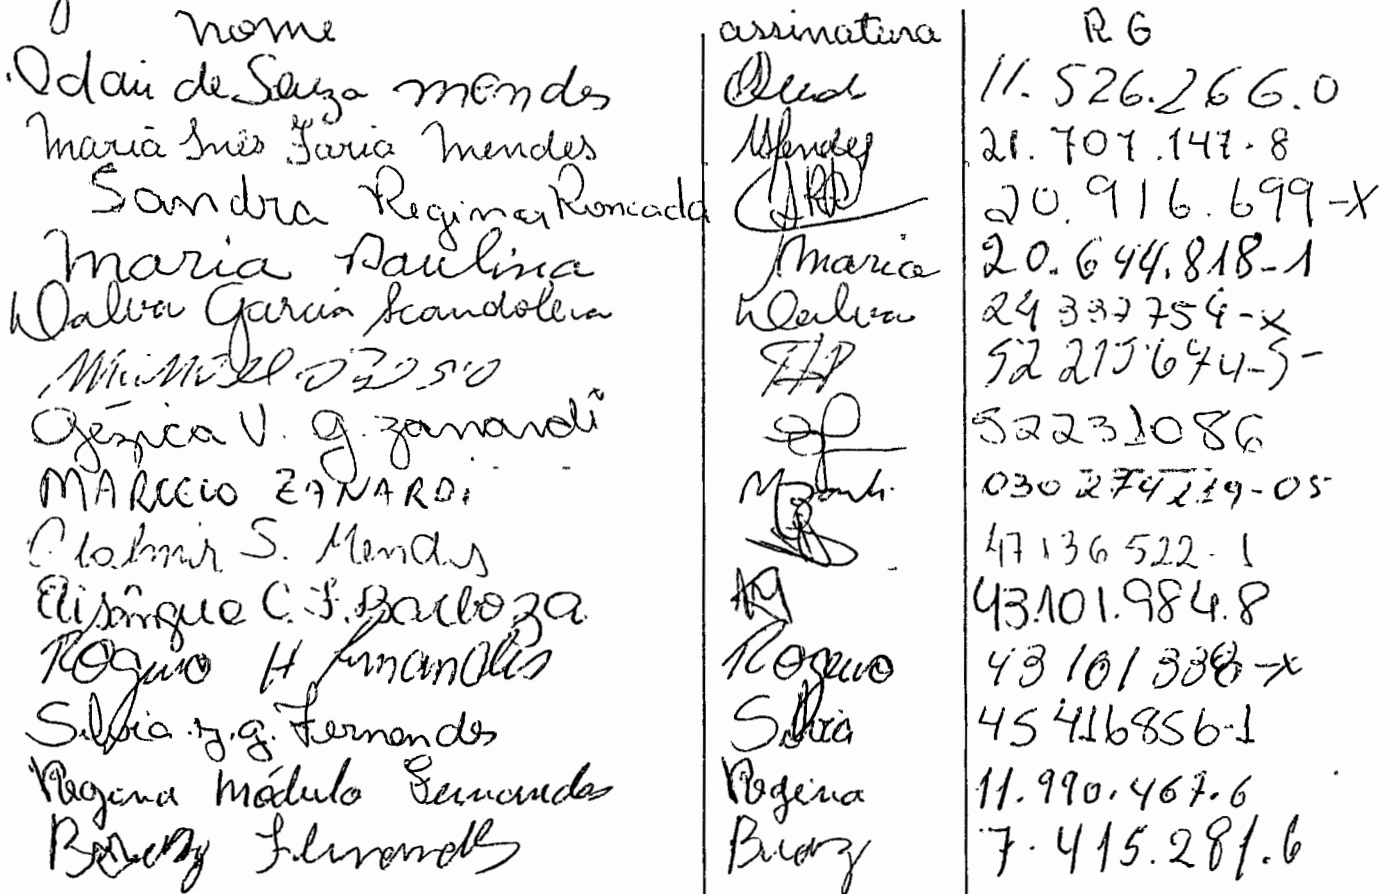 nome assinatura RG
Odair de Souza Mendes 11.526.266.0
Maria Inês Faria Mendes Mendes 21.707.147.8
Sandra Regina Roncada 20.916.699-X
Maria Paulina Maria 20.644.818-1
Dalva Garcia Scandolera Dalva 24 337754-x
52 215674-5
V. G. Zanardi 52231086
MARCELO ZANARDI 030 274219-05
S. Mendes 47136522-1
C. F. Barboza 43.101.984.8
Rogerio H Fernandes Rogerio 43101338-x
Silvia Fernandes Silvia 45 416856-1
Regina Módulo Fernandes Regina 11.990.467.6
Fernandes 7.415.281.6